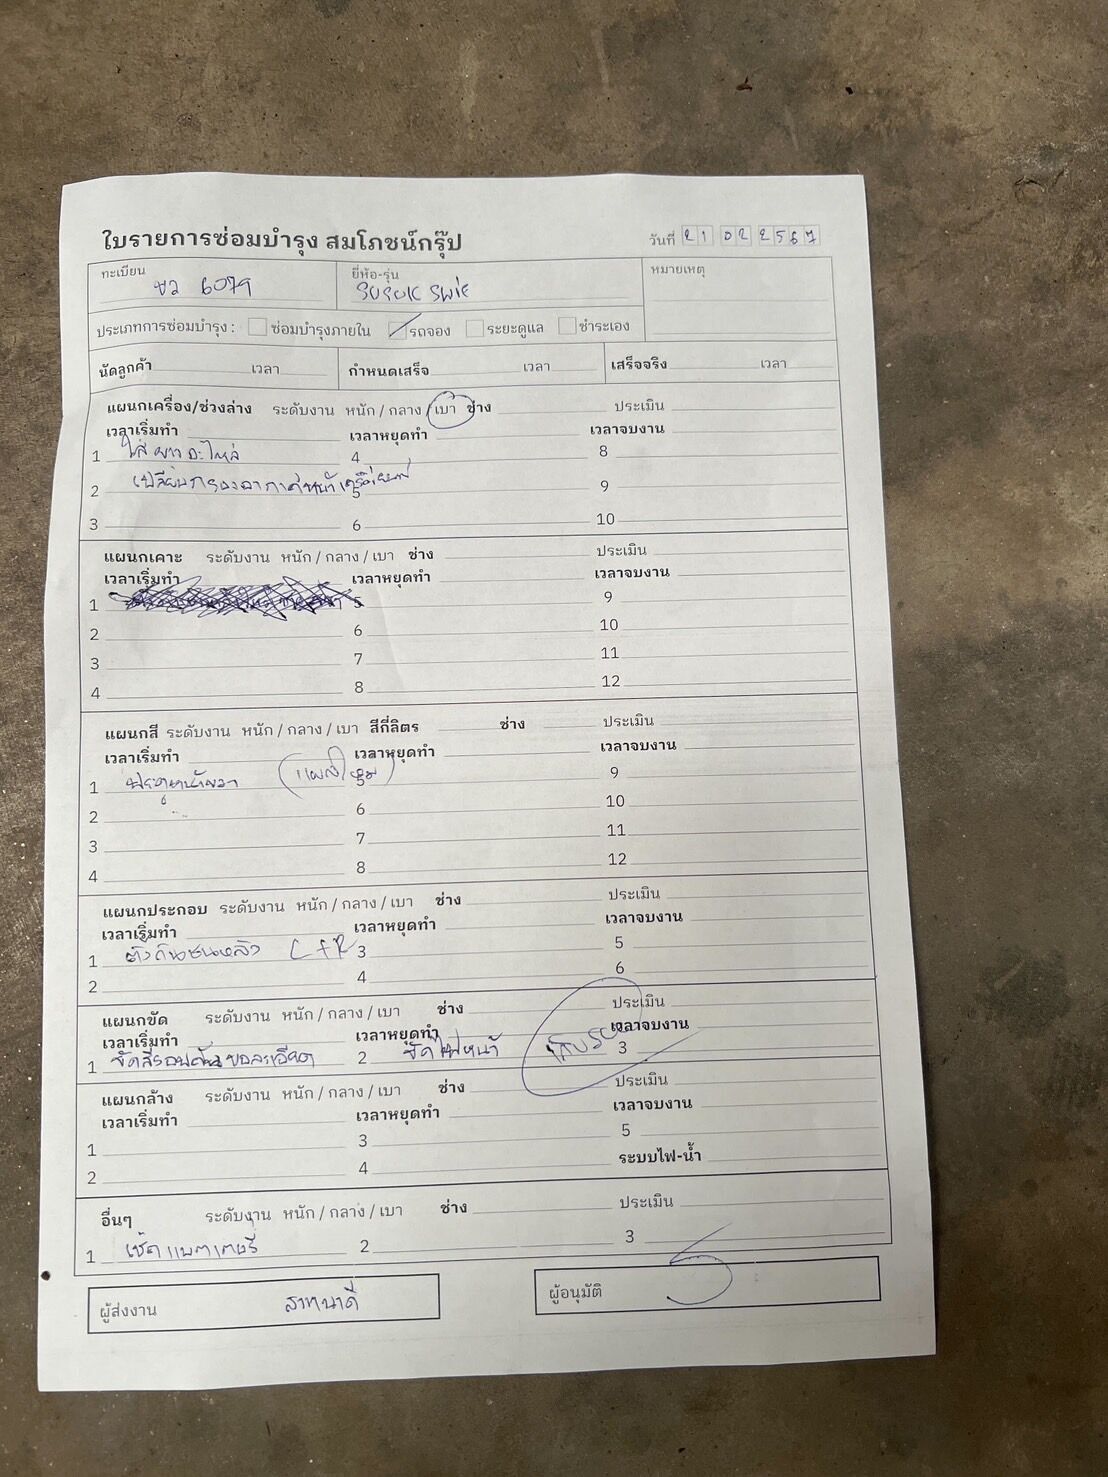 ใบรายการซ่อมบำรุง สมโภชน์กรุ๊ป วันที่ 21 02 2567
ทะเบียน ยี่ห้อ-รุ่น หมายเหตุ
ขว 6079 SUSUK SWIE
ประเภทการซ่อมบำรุง : ซ่อมบำรุงภายใน รถจอง ระยะดูแล ชำระเอง
นัดลูกค้า เวลา กำหนดเสร็จ เวลา เสร็จจริง เวลา
แผนกเครื่อง/ช่วงล่าง ระดับงาน หนัก / กลาง / เบา ช่าง ประเมิน
เวลาเริ่มทำ เวลาหยุดทำ เวลาจบงาน
1 ใส่ยางอะไหล่ 4 8
2 เปลี่ยนกรองอากาศหน้าเครื่องยนต์ 5 9
3 6 10
แผนกเคาะ ระดับงาน หนัก / กลาง / เบา ช่าง ประเมิน
เวลาเริ่มทำ เวลาหยุดทำ เวลาจบงาน
1 5 9
2 6 10
3 7 11
4 8 12
แผนกสี ระดับงาน หนัก / กลาง / เบา สีกี่ลิตร ช่าง ประเมิน
เวลาเริ่มทำ เวลาหยุดทำ เวลาจบงาน
1 ประตูหน้าขวา 5 9
2 6 10
3 7 11
4 8 12
แผนกประกอบ ระดับงาน หนัก / กลาง / เบา ช่าง ประเมิน
เวลาเริ่มทำ เวลาหยุดทำ เวลาจบงาน
1 ตั้งกันชนหลัง L+R 3 5
2 4 6
แผนกขัด ระดับงาน หนัก / กลาง / เบา ช่าง ประเมิน
เวลาเริ่มทำ เวลาหยุดทำ เวลาจบงาน
1 ขัดสีรอบคัน ขอละเอียด 2 ขัดไฟหน้า 3
แผนกล้าง ระดับงาน หนัก / กลาง / เบา ช่าง ประเมิน
เวลาเริ่มทำ เวลาหยุดทำ เวลาจบงาน
1 3 5
2 4 ระบบไฟ-น้ำ
อื่นๆ ระดับงาน หนัก / กลาง / เบา ช่าง ประเมิน
1 เช็คแบตเตอรี่ 2 3
ผู้ส่งงาน ผู้อนุมัติ